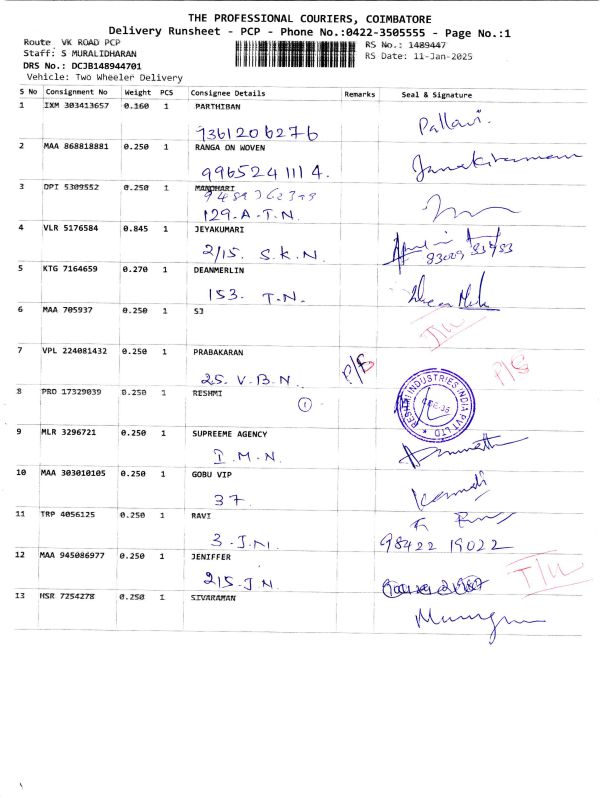 THE PROFESSIONAL COURIERS, COIMBATORE
Delivery Runsheet - PCP - Phone No.:0422-3505555 - Page No.:1
Route VK ROAD PCP
RS No.: 1489447
Staff: S MURALIDHARAN
RS Date: 11-Jan-2025
DRS No.: DCJB148944701
Vehicle: Two Wheeler Delivery
S No Consignment No Weight PCS Consignee Details Remarks Seal & Signature
1 IXM 303413657 0.160 1 PARTHIBAN
9361206276 Pallavi.
2 MAA 868818881 0.250 1 RANGA ON WOVEN
9965241114. Janakiraman
3 DPI 5309552 0.250 1 MANOHARI
129.A.T.N.
4 VLR 5176584 0.845 1 JEYAKUMARI
2/15. S.K.N.
5 KTG 7164659 0.270 1 DEANMERLIN
153. T.N.
6 MAA 705937 0.250 1 SJ
7 VPL 224081432 0.250 1 PRABAKARAN
25. V.B.N.
8 PRO 17329039 0.250 1 RESHMI
1
RESHMI INDUSTRIES INDIA PVT LTD
9 MLR 3296721 0.250 1 SUPREEME AGENCY
I.M.N.
10 MAA 303010105 0.250 1 GOBU VIP
37.
11 TRP 4056125 0.250 1 RAVI
3.J.N. 98422 19022
12 MAA 945086977 0.250 1 JENIFFER
215.J.N.
13 HSR 7254278 0.250 1 SIVARAMAN
Murugan